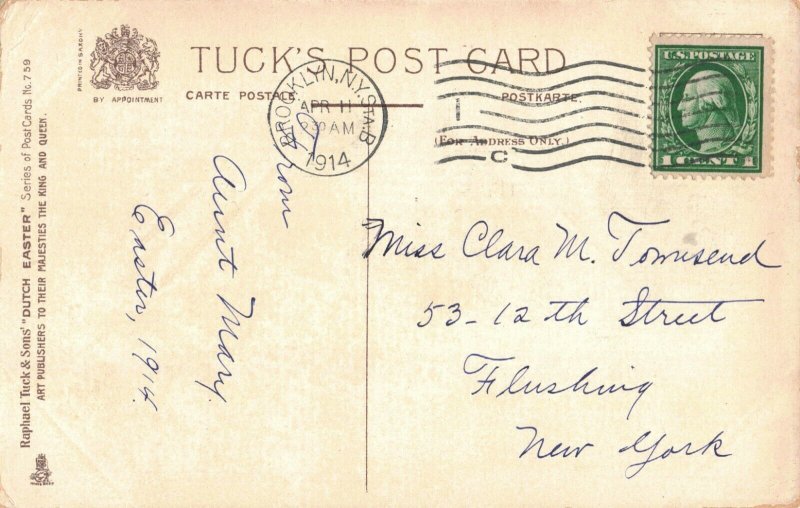 TUCK'S POST CARD
CARTE POSTALE
POSTKARTE.
(FOR ADDRESS ONLY.)
BY APPOINTMENT
PRINTED IN SAXONY
BROOKLYN, N.Y. STA. B
APR 11
30 AM
1914
C
U.S. POSTAGE
1 CENT 1
From
Aunt Mary.
Easter, 1914.
Miss Clara M. Townsend
53-12th Street
Flushing
New York
Raphael Tuck & Sons' "DUTCH EASTER" Series of PostCards No. 759
ART PUBLISHERS TO THEIR MAJESTIES THE KING AND QUEEN.